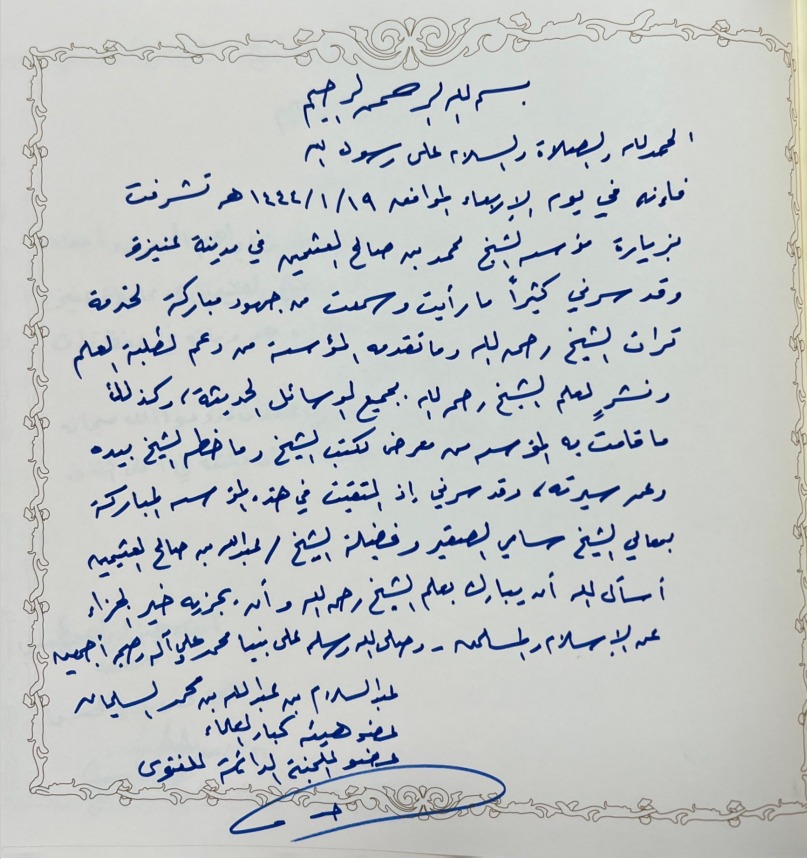 بسم الله الرحمن الرحيم
الحمد لله والصلاة والسلام على رسول الله
فإنه في يوم الإربعاء الموافق ١٤٤٤/١/١٩ هـ تشرفت
بزيارة مؤسسة الشيخ محمد بن صالح العثيمين في مدينة عنيزة
وقد سرني كثيراً ما رأيت وسمعت من جهود مباركة لخدمة
تراث الشيخ رحمه الله وما تقدمه المؤسسة من دعم لطلبة العلم
ونشرٍ لعلم الشيخ رحمه الله بجميع الوسائل الحديثة، وكذلك
ما قامت به المؤسسة من معرض لكتب الشيخ وما خطه الشيخ بيده
وعن سيرته، وقد سرني إذ التقيت في هذه المؤسسة المباركة
بمعالي الشيخ سامي الصقير وفضيلة الشيخ / عبدالله بن صالح العثيمين
أسأل الله أن يبارك بعلم الشيخ رحمه الله وأن يجزيه خير الجزاء
عن الإسلام والمسلمين - وصلى الله وسلم على نبينا محمد على آله وصحبه أجمعين
عبدالسلام بن عبدالله بن محمد السليمان
عضو هيئة كبار العلماء
عضو اللجنة الدائمة للفتوى